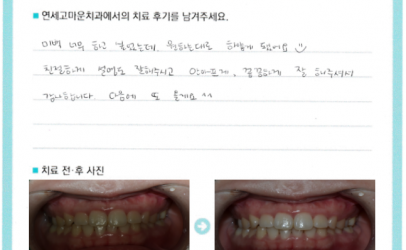 연세고마운치과에서의 치료 후기를 남겨주세요.
미백 너무 하고 싶었는데, 원하는대로 하얗게 됐어요
친절하게 설명도 잘해주시고 안아프게, 꼼꼼하게 잘 해주셔서
감사합니다. 다음에 또 올게요 ^^
치료 전·후 사진